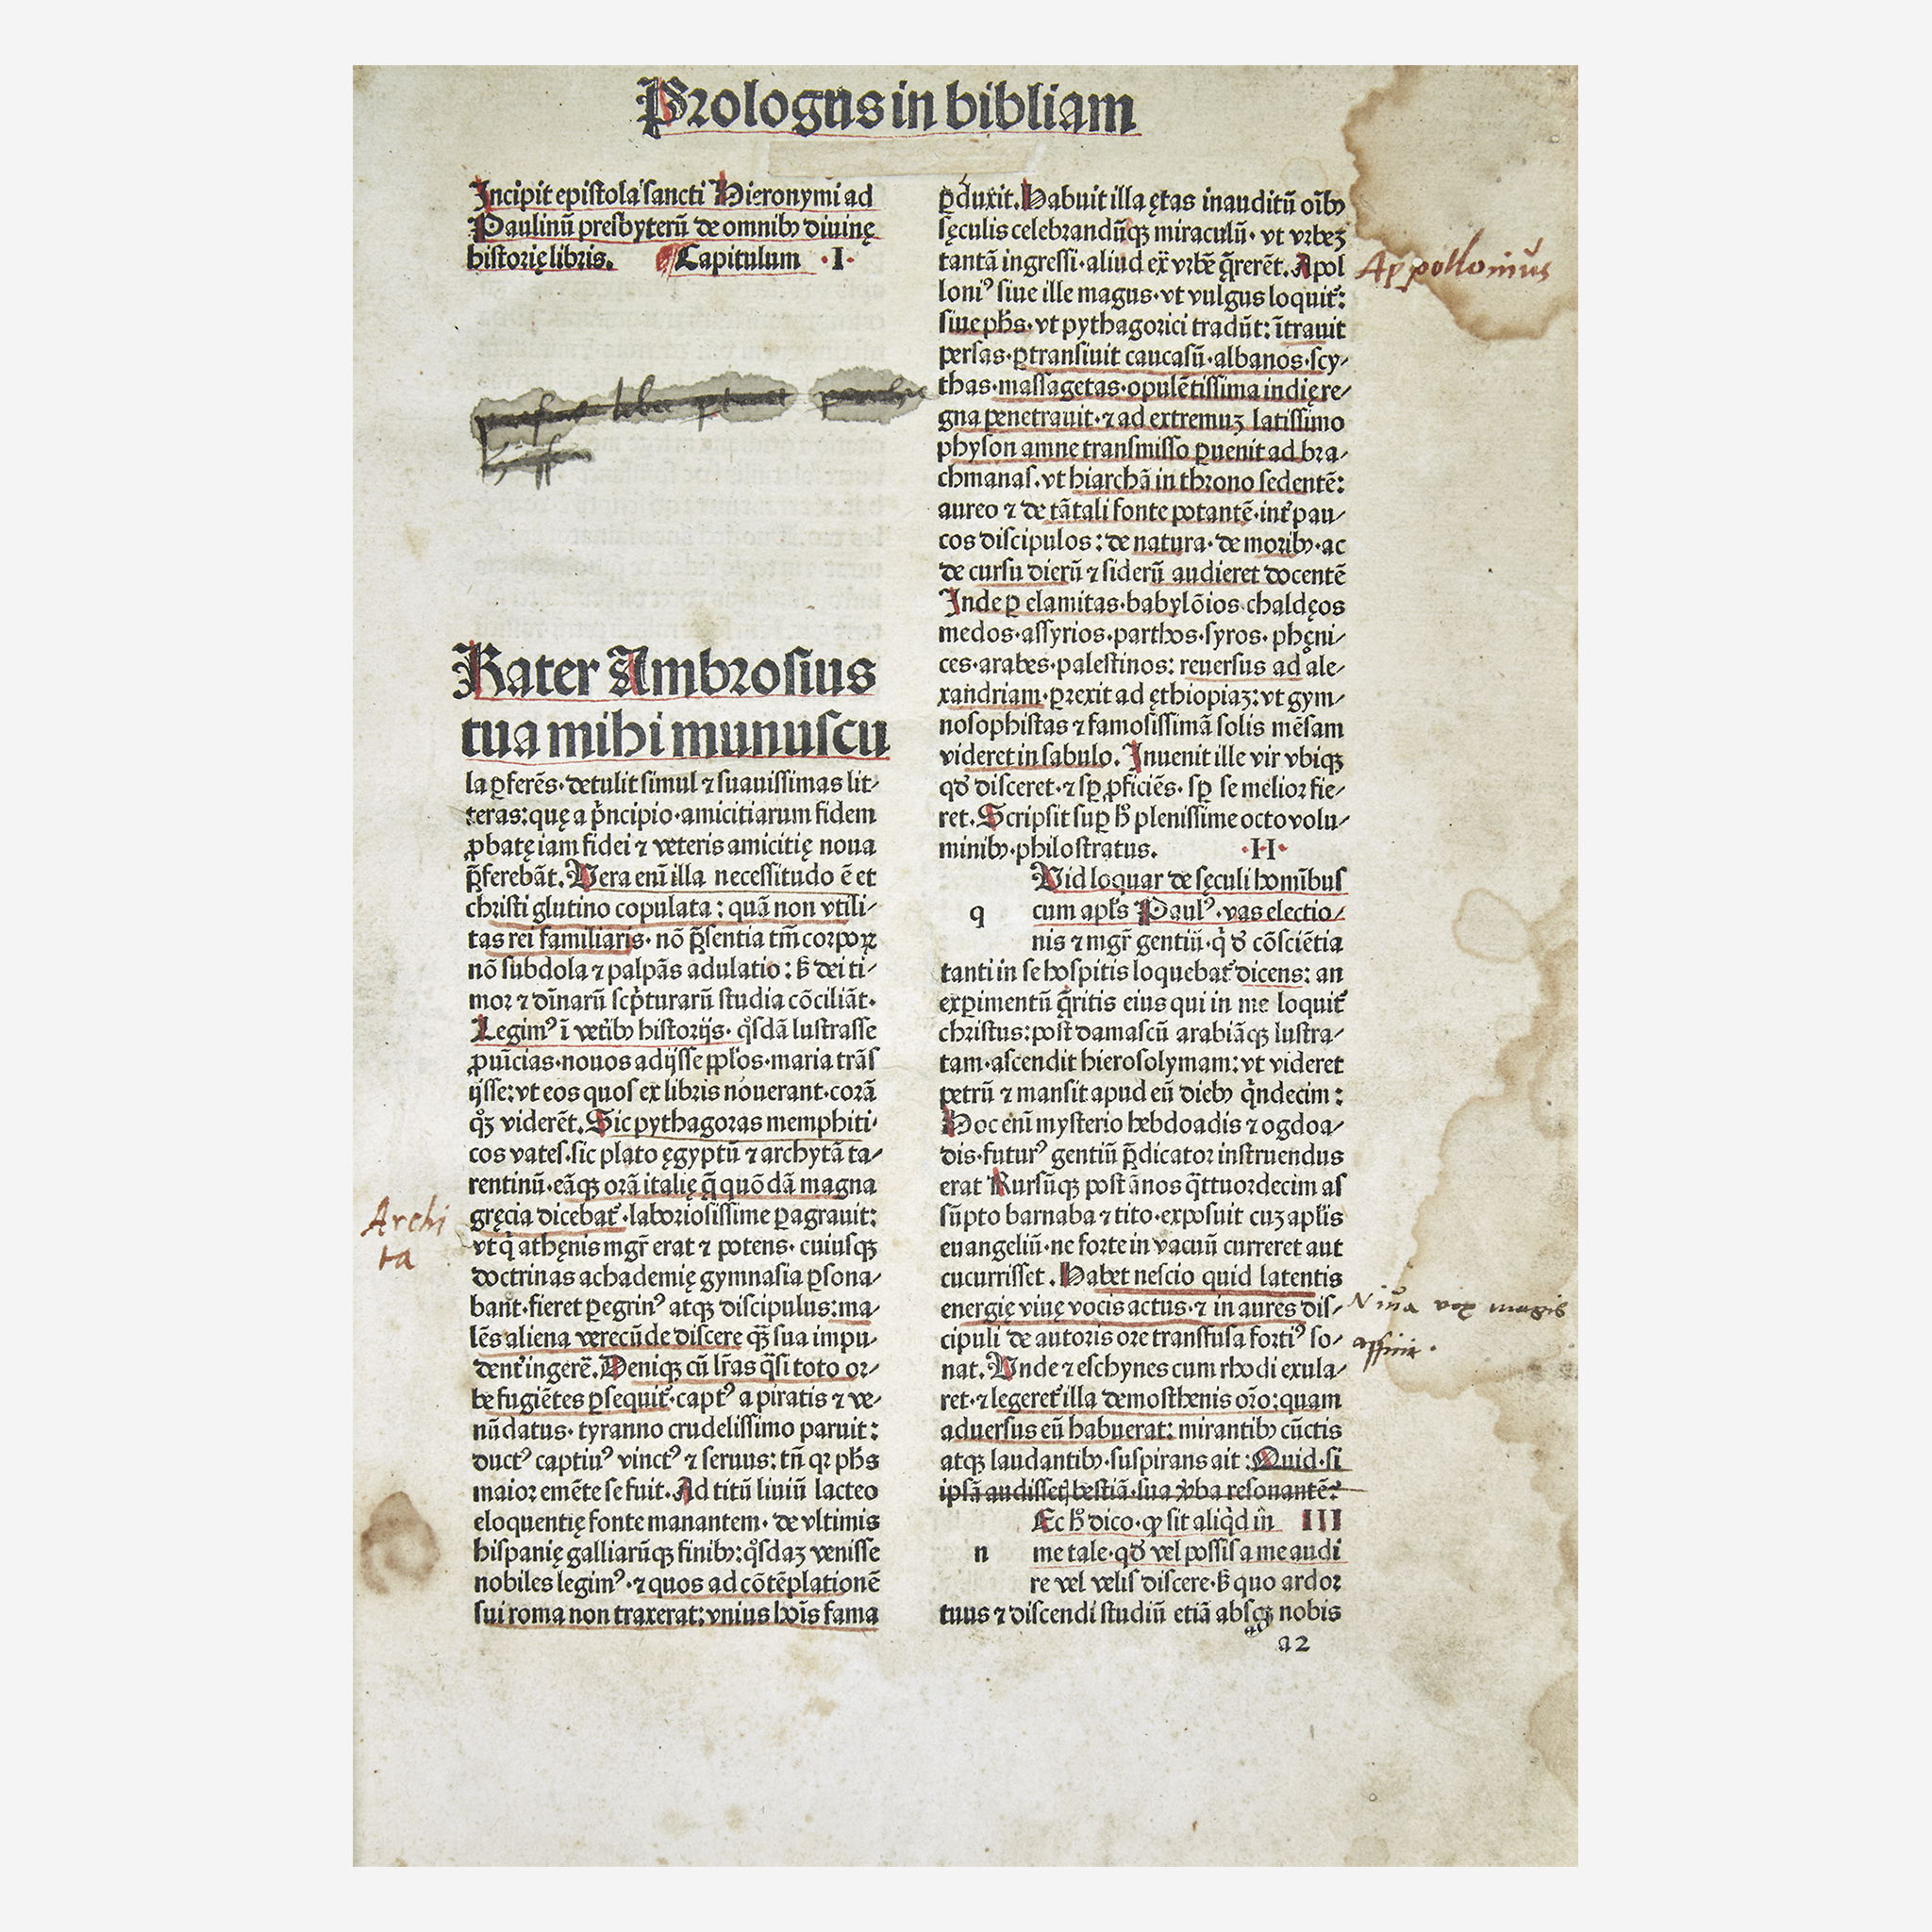 Prologus in bibliam
Incipit epistola sancti Hieronymi ad
Paulinū presbyterū de omnibꝰ diuinę
historię libris. Capitulum ·I·
liber
Rater Ambrosius
tua mihi munuscu
la ꝑferēs· detulit simul ⁊ suauissimas lit-
teras: quę a pͥncipio· amicitiarum fidem
ꝓbatę iam fidei ⁊ veteris amicitię noua
p̄ferebāt. Vera enī illa necessitudo ē et
christi glutino copulata: quā non vtili-
tas rei familiaris· nō p̄sentia tm̄ corpoꝝ
nō subdola ⁊ palpās adulatio: ß dei ti-
mor ⁊ dīnarū scpͥturarū studia cōciliāt.
Legimꝰ ī veteribꝰ historijs· qͦsdā lustrasse
ꝓuīcias· nouos adijsse ppl'os· maria trās
ijsse: vt eos quos ex libris nouerant· corā
qͦꝫ viderēt. Sic pythagoras memphiti-
cos vates· sic plato ęgyptū ⁊ archytā ta-
rentinū· eāqꝫ orā italię q̄ quōdā magna
Archi
gręcia dicebat᷑· laboriosissime ꝑagrauit:
ta
vt qͥ athęnis mgr̄ erat ⁊ potens· cuiusqꝫ
doctrinas achademię gymnasia ꝑsona-
bant· fieret ꝑegrinꝰ atqꝫ discipulus: ma-
lēs aliena verecūde discere qꝫ̄ sua impu-
dent᷑ ingerē. Deniqꝫ cū lr̄as qͣsi toto or-
be fugiētes ꝑsequit᷑· captꝰ a piratis ⁊ ve-
nūdatus· tyranno crudelissimo paruit:
ductꝰ captiuꝰ vinctꝰ ⁊ seruus: tn̄ qꝛ ph̄s
maior emēte se fuit. Ad titū liuiū lacteo
eloquentię fonte manantem· de vltimis
hispanię galliarūqꝫ finibꝰ: qͦsdaꝫ venisse
nobiles legimꝰ· ⁊ quos ad cōtēplationē
sui roma non traxerat: vnius hoīs fama
ꝑduxit. Habuit illa ętas inauditū oībꝰ
sęculis celebrandūqꝫ miraculū· vt vrbeꝫ
tantā ingressi· aliud ex̄ vrbē q̄rerēt. Apol
Appollonius
loniꝰ siue ille magus· vt vulgus loquit᷑:
siue ph̄s· vt pythagorici tradūt: ītrauit
persas· ꝑtransiuit caucasū· albanos· scy-
thas· massagetas· opulētissima indię re-
gna penetrauit· ⁊ ad extremuꝫ latissimo
physon amne transmisso ꝑuenit ad bra-
chmanas· vt hiarchā in throno sedentē:
aureo ⁊ de tātali fonte potantē· int᷑ pau-
cos discipulos: de natura· de moribꝰ· ac
de cursu dierū ⁊ siderū audieret docentē
Inde ꝑ elamitas· babylōios· chaldęos
medos· assyrios· parthos· syros· phęni-
ces· arabes· palestinos: reuersus ad ale-
xandriam· ꝑrexit ad ęthiopiaꝫ: vt gym-
nosophistas ⁊ famosissimā solis mēsam
videret in sabulo. Inuenit ille vir vbiqꝫ
qđ disceret· ⁊ sꝑ ꝓficiēs· sꝑ se melior fie-
ret. Scripsit suꝑ hͦ plenissime octo volu-
minibꝰ· philostratus. ·II·
Vid loquar de sęculi homībus
q cum apl's Paulꝰ· vas electio-
nis ⁊ mgr̄ gentiū· qͥ đ cōsciētia
tanti in se hospitis loquebat᷑ dicens: an
exꝑimentū q̄ritis eius qui in me loquit᷑
christus: post damascū arabiāqꝫ lustra-
tam· ascendit hierosolymam: vt videret
petrū ⁊ mansit apud eū diebꝰ qͥndecim:
Hoc enī mysterio hebdoadis ⁊ ogdoa-
dis· futurꝰ gentiū p̄dicator instruendus
erat Rursūqꝫ post ānos qͣttuordecim as
sūpto barnaba ⁊ tito· exposuit cuꝫ apl'is
euangeliū· ne forte in vacuū curreret aut
cucurrisset. Habet nescio quid latentis
energię viuę vocis actus· ⁊ in aures dis-
vox magis
cipuli de autoris ore transfusa fortiꝰ so-
nat. Vnde ⁊ eschynes cum rhodi exula-
ret· ⁊ legeret᷑ illa demosthenis or̄o: quam
aduersus eū habuerat: mirantibꝰ cūctis
atqꝫ laudantibꝰ· suspirans ait: Quid· si
ipsā audissetꝭ bestiā· sua v̾ba resonantē?
Ec hͦ dico· ꝙ sit aliqͥd in III
n me tale· qđ vel possis a me audi
re vel velis discere· ß quo ardor
tuus ⁊ discendi studiū etiā absqꝫ nobis
a2